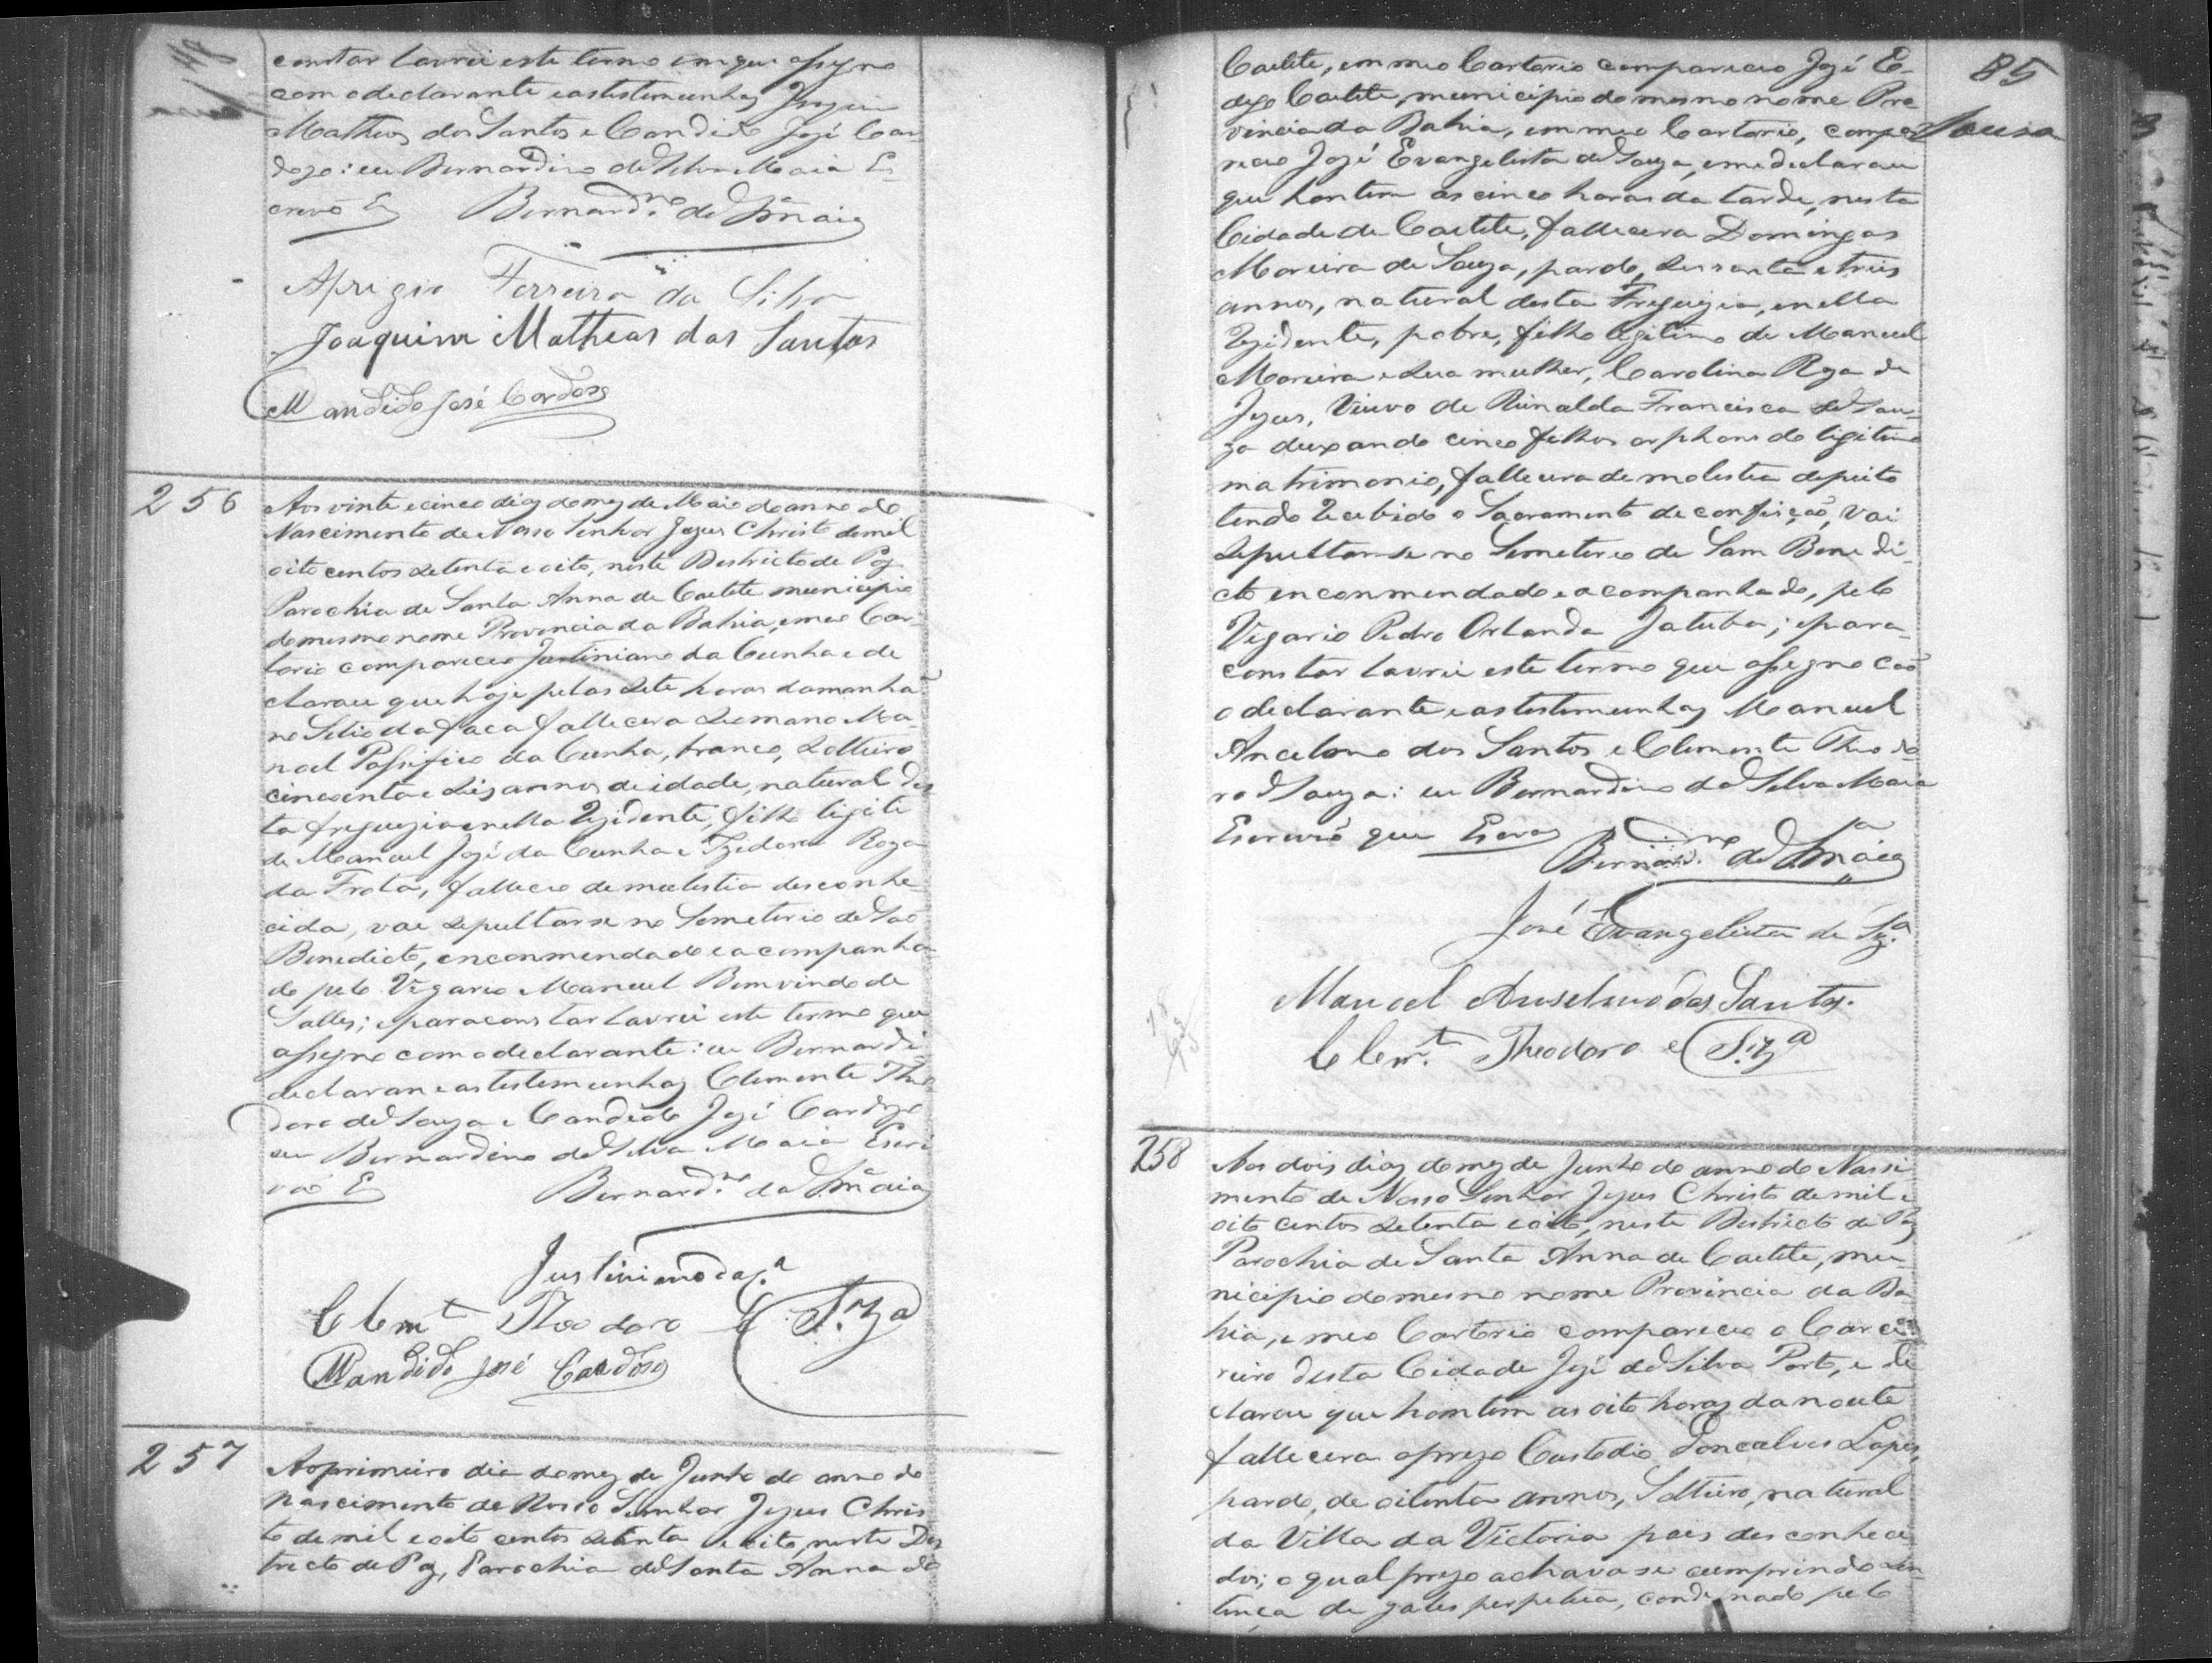 constar lavrei este termo em que assigno
com o declarante e as testemunhas Joaquim
Matheus dos Santos e Candido José Car-
dozo: eu Bernardino da Silva Maia Es-
crivão E Bernard.no da S.a Maia
Aprigio Ferreira da Silva
Joaquim Matheas dos Santos
Candido José Cardoso
256
Aos vinte e cinco dias do mez de Maio do anno do
Nascimento de Nosso Senhor Jezus Christo de mil
oito centos setenta e oito, neste Destricto de Paz
Parochia de Santa Anna de Caetite municipio
do mesmo nome Provincia da Bahia, em meo Car-
torio compareceo Justiniano da Cunha e de
clarou que hoje pelas sete horas da manhã
no Sitio da Faca fallecera seo mano Ma-
noel Passifico da Cunha, branco, solteiro
cincoenta e seis annos de idade, natural des
ta freguezia e nella rezidente, filho legiti
de Manoel José da Cunha e Izidora Roza
da Frota, falleceo de molestia desconhe-
cida, vae sepultarse no Semeterio de São
Benedicto, enconmendado e acompanha-
do pelo Vigario Manoel Bemvindo de
Salles; e para constar lavrei este termo que
assigno com o declarante: eu Bernardi
declaran e as testemunhas Clemente Theo
doro de Souza e Candido José Cardozo
eu Bernardino da Silva Maia Escri
vão E Bernard.no da S.a Maia
Justiniano da C.a
Clem.t Theodoro de Sz.a
Candido José Cardoso
257
Ao primeiro dia do mez de Junho do anno do
Nascimento de Nosso Senhor Jezus Chris
to de mil e oito centos setenta e oito, neste Des
tricto de Paz, Parochia de Santa Anna do
85
Sousa
Caetite, em meo Cartorio compareceo José E-
dezo Caetite, municipio do mesmo nome Pro-
vincia da Bahia, em meo Cartorio, compa-
receo José Evangelista de Souza, e me declarou
que hontem as cinco horas da tarde, nesta
Cidade de Caetite, fallecera Domingos
Moreira de Souza, pardo, sessenta e treis
annos, natural desta Freguezia, e nella
rezidente, pobre, filho legitimo de Manoel
Moreira e sua mulher, Carolina Roza de
Jezus, Viuvo de Rinalda Francisca de Sou-
za deixando cinco filhos orphans do legitimo
matrimonio, fallecera de molestia de peito
tendo recebido o Sacramento de confição, vai
sepultar-se no Semeterio de Sam Benedi-
cto enconmendado e acompanhado, pelo
Vigario Pedro Orlando Jatuba; e para
constar lavrei este termo que assigno com
o declarante e as testemunhas Manoel
Ancelmo dos Santos e Clemente Theodo
ro de Souza: eu Bernardino da Silva Maia
Escrivão que Escrevo
Bernard.no da S.a Maia
José Evangelista de Sz.a
Manoel Anselmo dos Santos.
Clem.t Theodoro de Sz.a
258
Aos dois dias do mez de Junho do anno do Nassi
mento de Nosso Senhor Jezus Christo de mil e
oito centos setenta e oito, neste Destricto de Paz
Parochia de Santa Anna de Caetite, mu-
nicipio do mesmo nome Provincia da Ba
hia, e meo Cartorio compareceo o Carce
reiro desta Cidade José da Silva Porto, e de
clarou que hontem as oito horas da noute
fallecera o prezo Custodio Goncalves Lopes,
pardo, de oitenta annos, Solteiro, natural
da Villa da Victoria pais desconheci
dos; o qual prezo achava se cumprindo sen-
tença de galés perpetua, condenado pelo